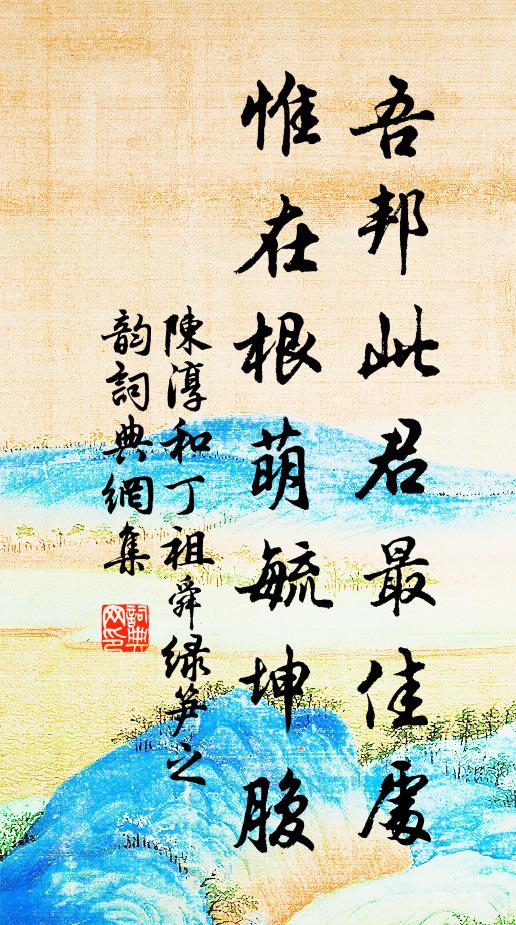 吾邦此君最佳處
惟在根萌毓坤腹
陳淳和丁祖舜緑笋之
韵詞典網集
詞典